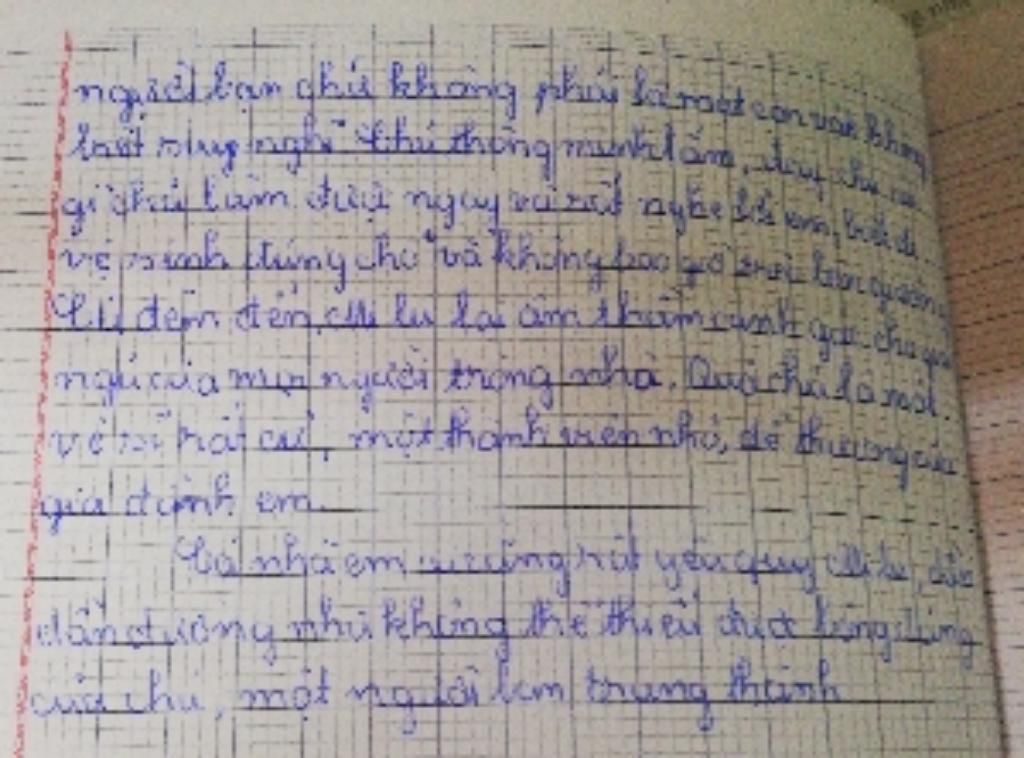 người bạn chứ không phải là một con vật không
biết suy nghĩ. Chú thông minh lắm, dạy chú cái
gì chú làm được ngay và rất nghe lời em, biết đi
vệ sinh đúng chỗ và không bao giờ trèo lên
đêm đến, Mi lu lại âm thầm canh gác cho
ngủ của mọi người trong nhà. Quả chú là một
vệ sĩ rất cừ, một thành viên nhỏ, dễ thương của
gia đình em.
Cả nhà em ai cũng rất yêu quý Mi lu,
dần dường như không thể thiếu được
của chú, một người bạn trung thành